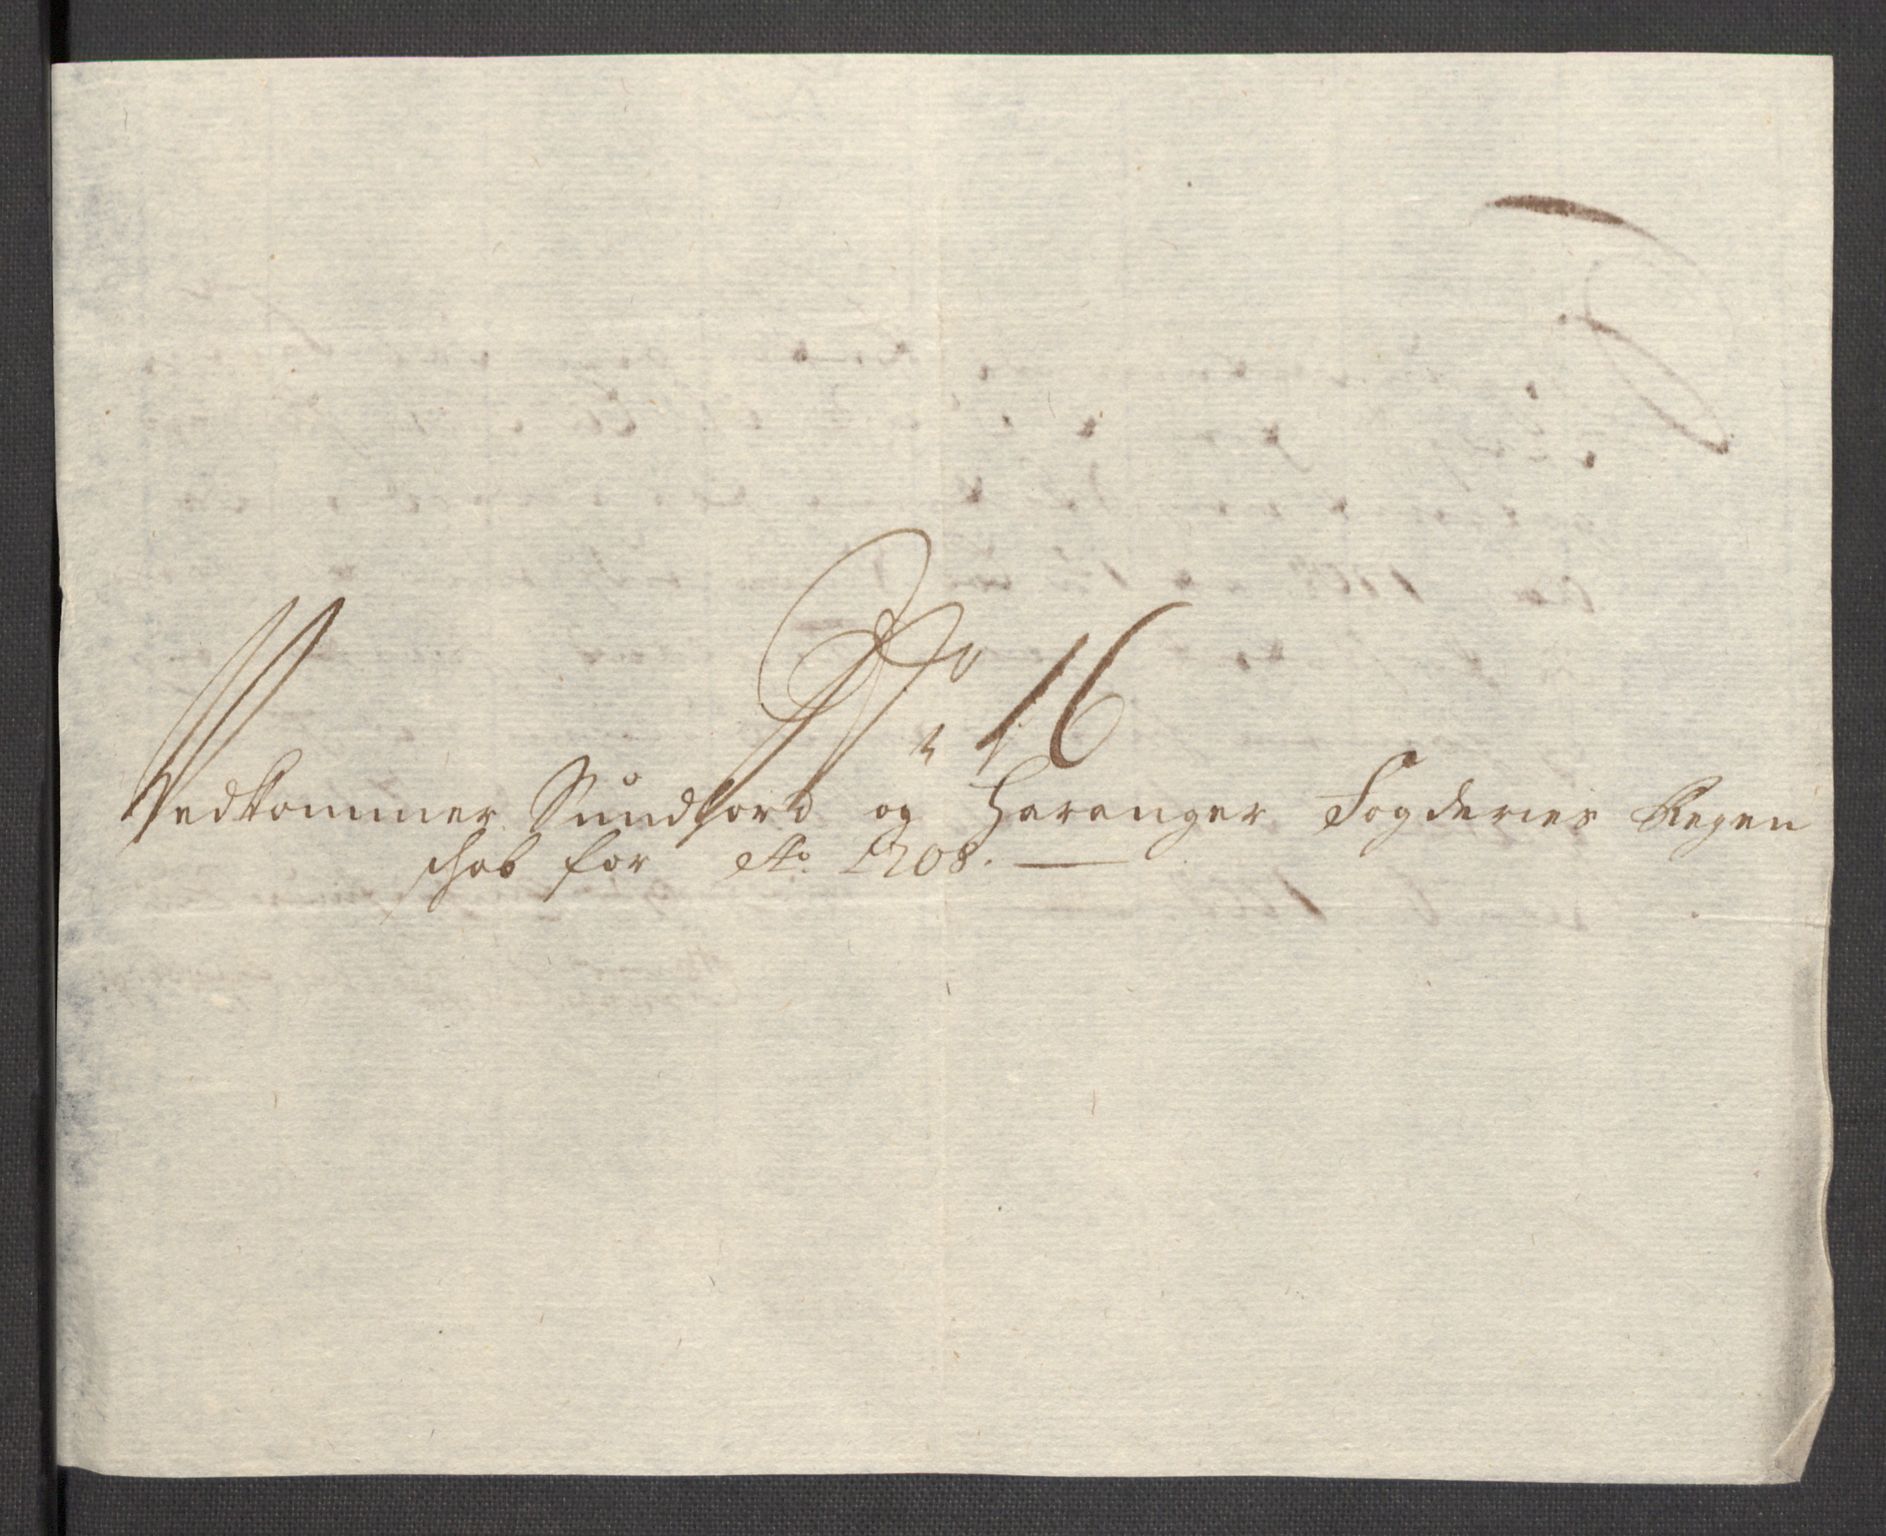 No 16
Vedkommer Sundhord og Haranger Fogderies Regen
schab for Ao. 1708.